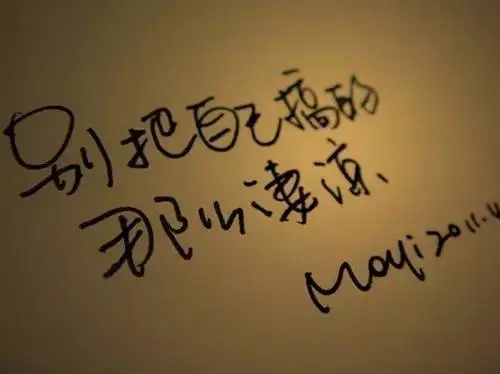 别把自己搞的
那么凄凉
Moyi 2011.4